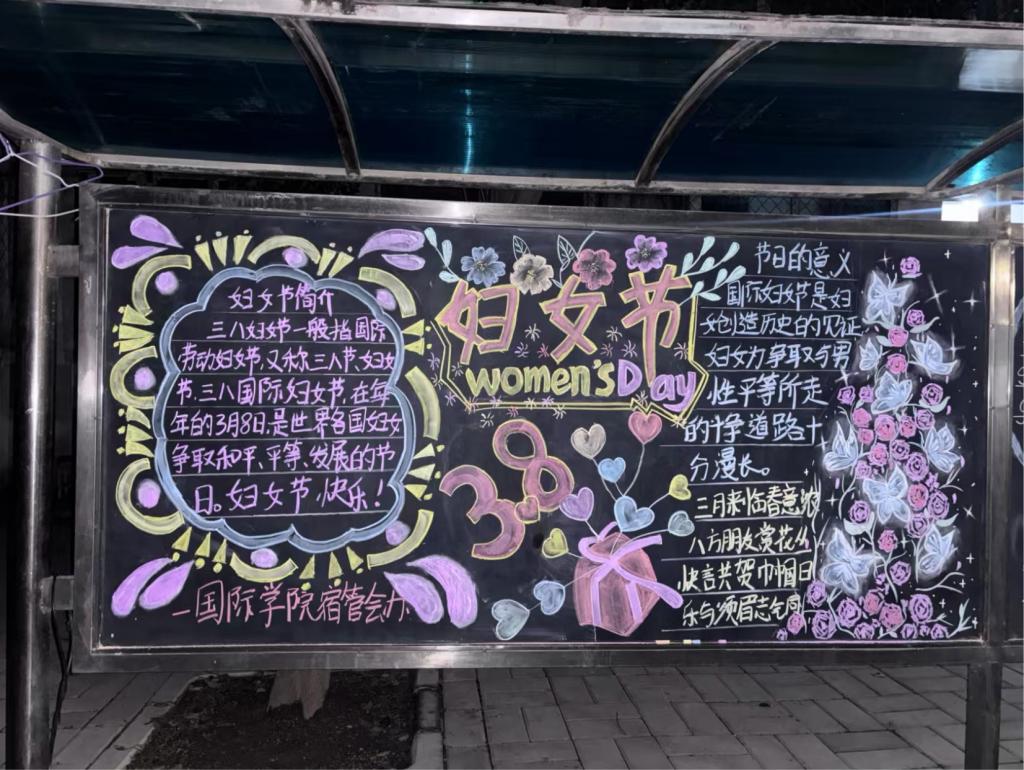 妇女节简介
三八妇女节一般指国际
劳动妇女节,又称三八节、妇女
节、三八国际妇女节,在每
年的3月8日,是世界各国妇女
争取和平、平等、发展的节
日。妇女节,快乐!
国际学院宿管会办
妇女节
women's Day
3.8
节日的意义
国际妇女节是妇
女创造历史的见证
妇女力争取与男
性平等所走
的斗争道路十
分漫长。
三月来临春意浓
八方朋友赏花丛
快言共贺巾帼日
乐与须眉志气同